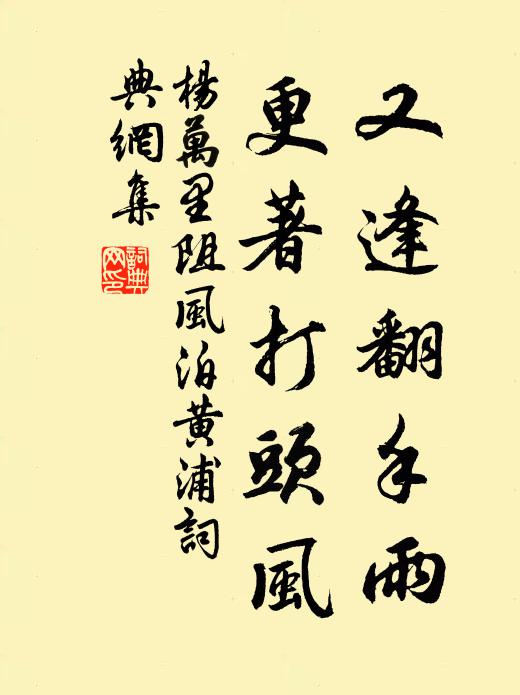 又逢翻手雨
更著打頭風
楊萬里阻風泊黃浦詞
典網集
詞典
网印